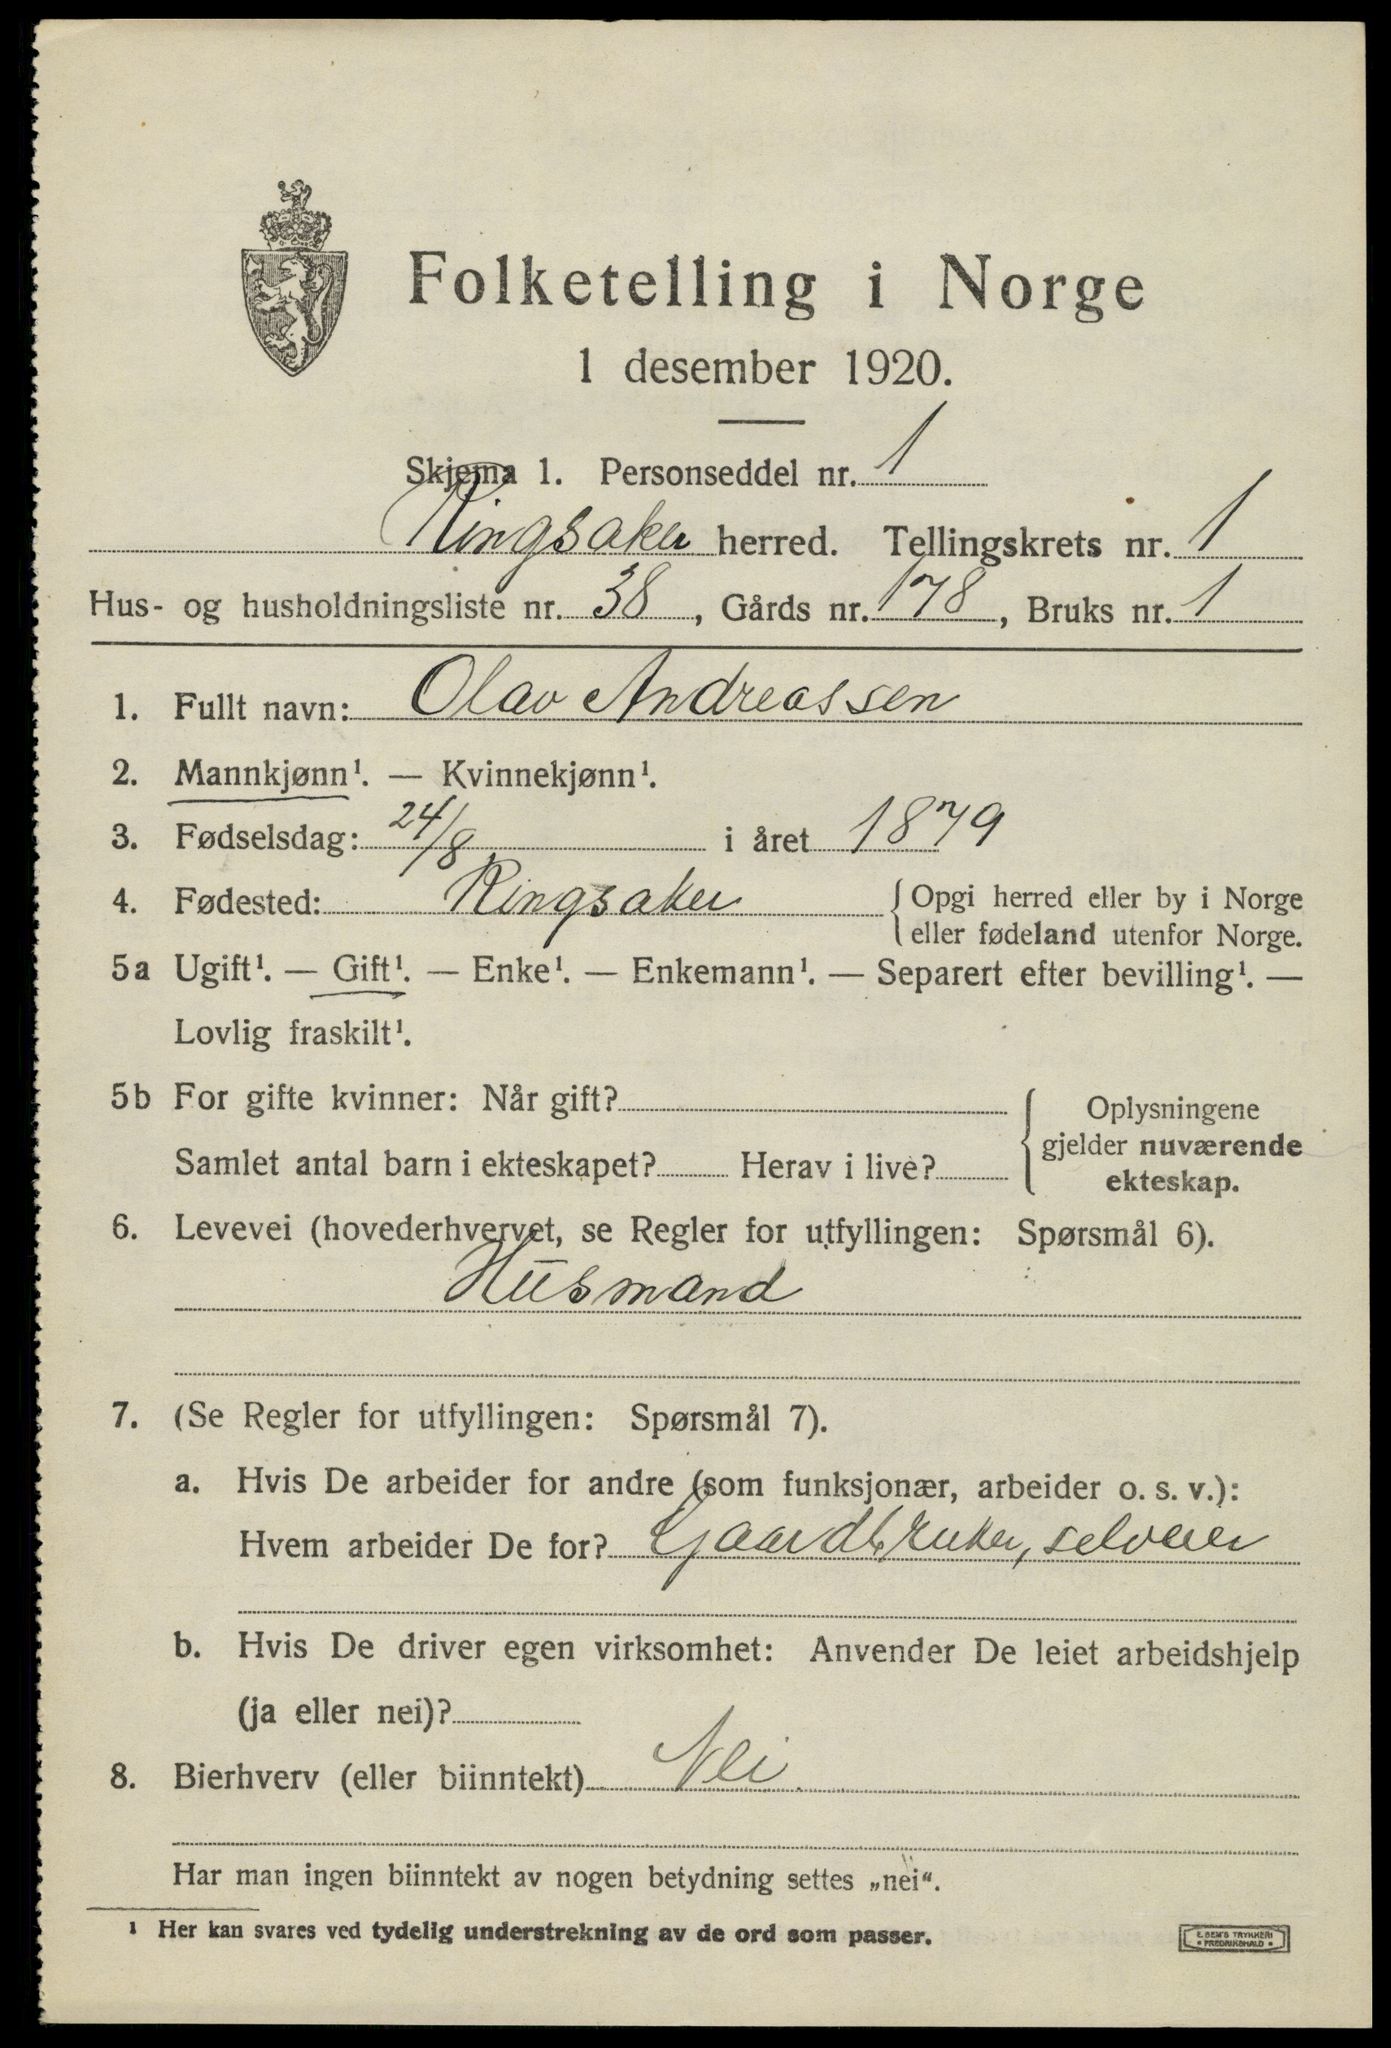 Folketelling i Norge
1 desember 1920.
Skjema 1. Personseddel nr. 1
Ringsaker herred. Tellingskrets nr. 1
Hus- og husholdningsliste nr. 38, Gårds nr. 178, Bruks nr. 1
1. Fullt navn: Olav Andreassen
2. Mannkjønn¹. — Kvinnekjønn¹.
3. Fødselsdag: 24/8 i året 1879
4. Fødested: Ringsaker { Opgi herred eller by i Norge
eller fødeland utenfor Norge.
5a Ugift¹. — Gift¹. — Enke¹. — Enkemann¹. — Separert efter bevilling¹. —
Lovlig fraskilt¹.
5b For gifte kvinner: Når gift?
Samlet antal barn i ekteskapet? Herav i live?
Oplysningene
gjelder nuværende
ekteskap.
6. Levevei (hovederhvervet, se Regler for utfyllingen: Spørsmål 6).
Husmand
7. (Se Regler for utfyllingen: Spørsmål 7).
a. Hvis De arbeider for andre (som funksjonær, arbeider o. s. v.):
Hvem arbeider De for? Gaardbruker, selveier
b. Hvis De driver egen virksomhet: Anvender De leiet arbeidshjelp
(ja eller nei)?
8. Bierhverv (eller biinntekt) Nei.
Har man ingen biinntekt av nogen betydning settes „nei“.
¹ Her kan svares ved tydelig understrekning av de ord som passer.
E. SEM'S TRYKKERI
• FREDRIKSHALD •